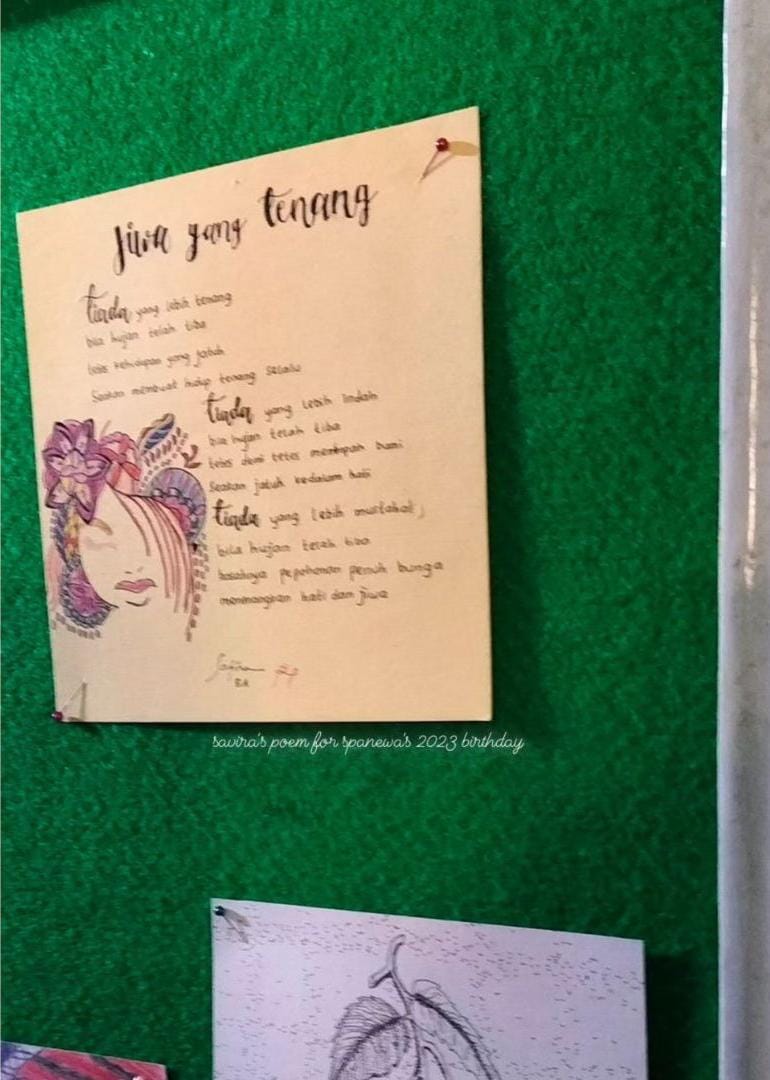 Jiwa yang tenang
tiada yang lebih tenang
bila hujan telah tiba
tetes kehidupan yang jatuh
Seakan membuat hidup tenang selalu
tiada yang lebih indah
bila hujan telah tiba
tetes demi tetes bumi
Seakan jatuh kedalam hati
tiada yang lebih mustahal;
bila hujan telah tiba
basahnya pepohonan penuh bunga
menenangkan hati dan jiwa
savira's poem for spanewa's 2023 birthday